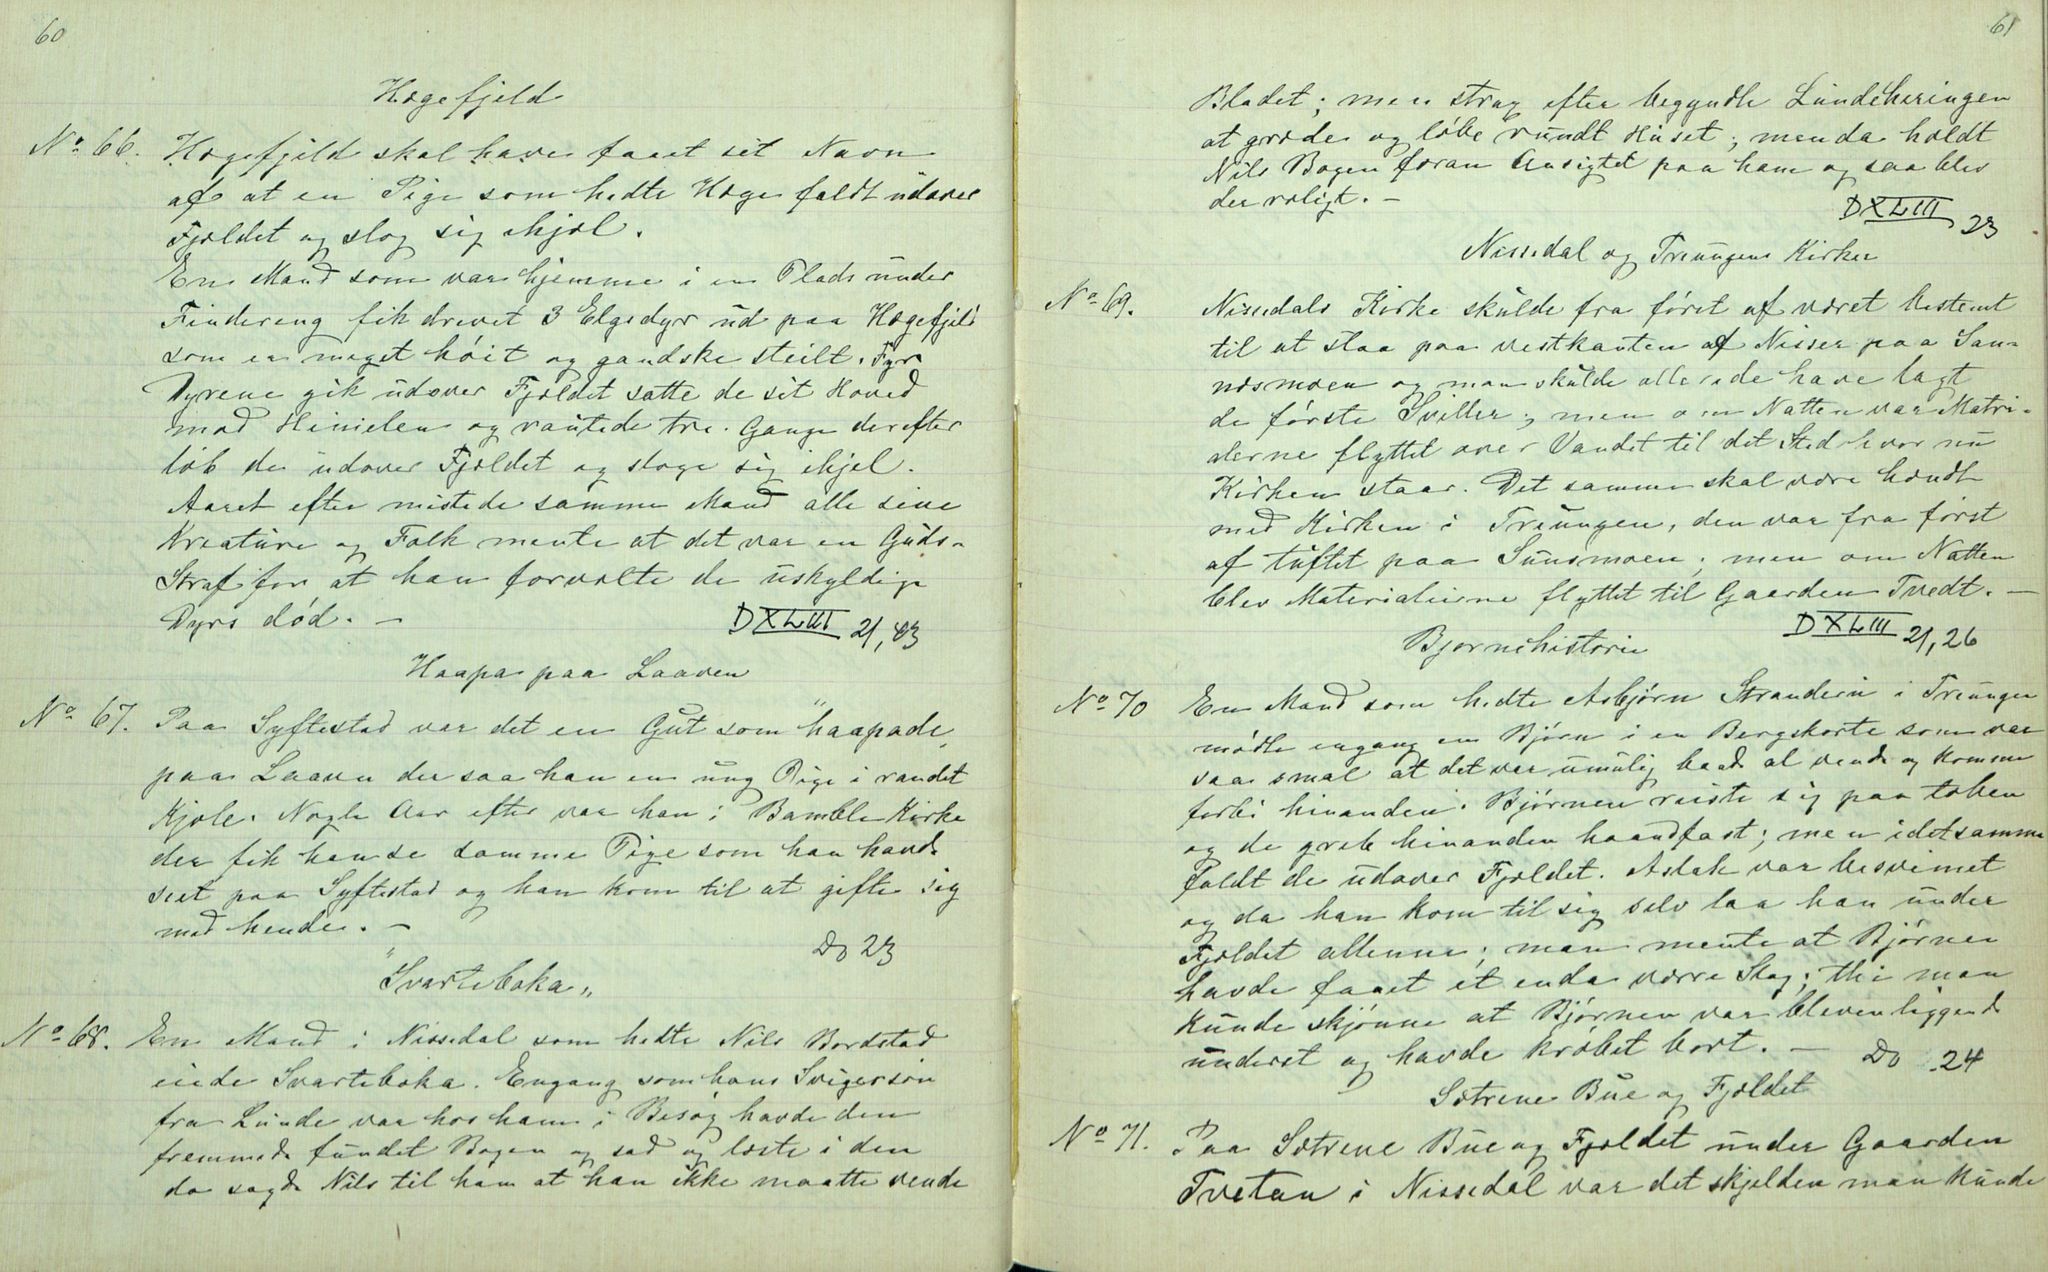 60
Hægefjeld
No 66. Hægefjeld skal have faaet sit Navn
af at en Pige som hedte Hæge faldt udover
Fjeldet og slog sig ihjel.
En Mand som var hjemme i en Plads under
Findereng fik drevet 3 Elgsdyr ud paa Hægefjeld
som er meget höit og gandske steilt. Før
Dyrene gik udover Fjeldet satte de sit Hoved
mod Himelen og rautede tre Gange derefter
löb de udover Fjeldet og sloge sig ihjel.
Aaret efter mistede samme Mand alle sine
Kreature og Folk mente at det var en Guds-
Straf for at han forvolte de uskyldige
Dyrs död. —
DXLIII 21, 83
Haapa paa Laaven
No 67. Paa Syftestad var det en Gut som "haapade"
paa Laaven der saa han en ung Pige i randet
Kjole. Nogle Aar efter var han i Bamble Kirke
der fik han se samme Pige som han havde
seet paa Syftestad og han kom til at gifte sig
med hende. —
Do 23
"Svarteboka"
No 68. En Mand i Nissedal som hedte Nils Bordstad
eiede Svarteboka. Engang som hans Svigersön
fra Lunde var hos ham i Besög havde den
fremmede fundet Bogen og sad og læste i den
da sagde Nils til ham at han ikke maatte vende
61
Bladet; men strax efter begyndte Lundeheringen
at græde og löbe rundt Huset; men da holdt
Nils Bogen foran Ansigtet paa ham og saa blev
der roligt. —
DXLIII 23
Nissedal og Treungens Kirker
No 69. Nissedals Kirke skulde fra först af været bestemt
til at staa paa vestkanten af Nisser paa San-
nesmoen og man skulde allerede have lagt
de förste Sviller; men om Natten var Matri-
alerne flyttet over Vandet til det Sted hvor nu
Kirken staar. Det samme skal være hændt
med Kirken i Treungen, den var fra först
af tuftet paa Sunsmoen; men om Natten
blev Materialierne flyttet til Gaarden Tvedt. —
DXLIII 21, 26
Bjørnehistorie
No 70 En Mand som hedte Asbjørn Strandein i Treungen
mødte engang en Bjørn i en Bergskorte som var
saa smal at det var umulig baade at vende og komme
forbi hinanden. Bjørnen reiste sig paa toben
og de greb hinanden haandfast; men i det samme
faldt de udover Fjeldet. Aslak var besvimet
og da han kom til sig selv laa han under
Fjeldet allenne; man mente at Bjørnen
havde faaet et enda værre Slag; thi man
kunde skjønne at Bjørnen var bleven liggende
underst og havde kröbet bort. —
Do 24
Sætrene Bue og Fjeldet
No 71. Paa Sætrene Bue og Fjeldet under Gaarden
Tvetan i Nissedal var det skjelden man kunde